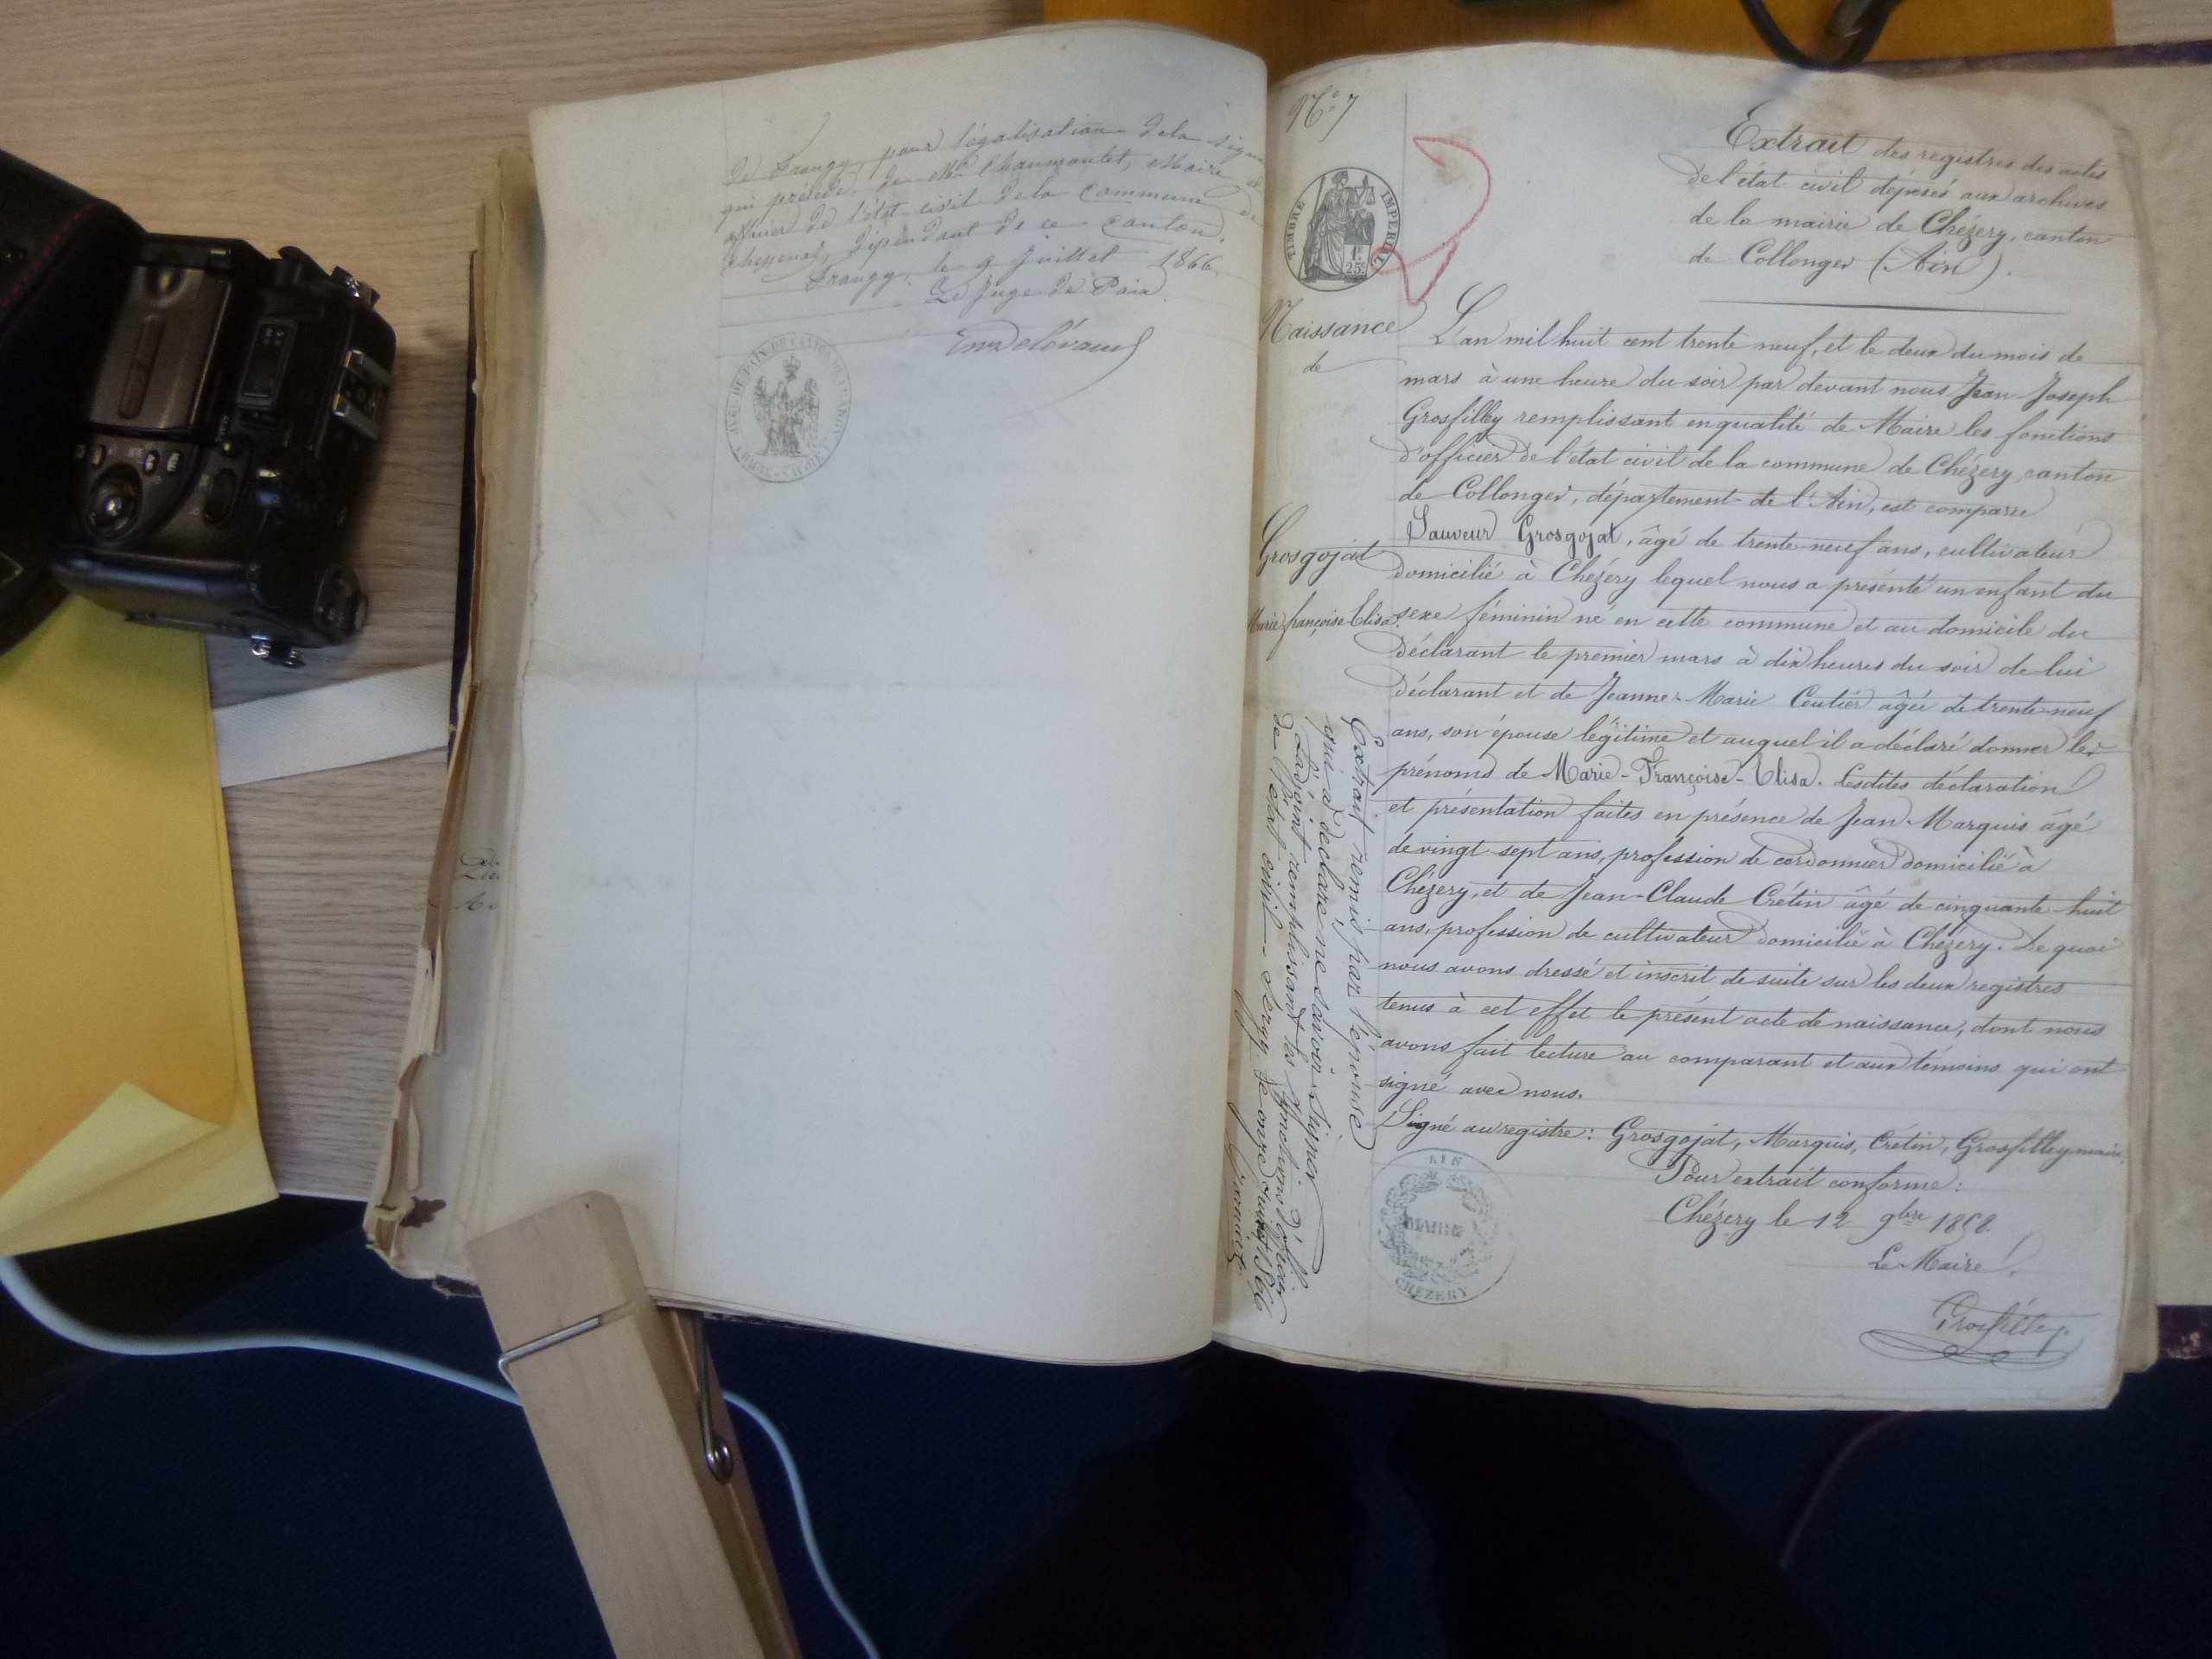 de Frangy, pour légalisation de la signa
qui précède de Mr Chaumontet, Maire et
officier de l'état-civil de la Commune de
Chessenaz, dépendant de ce canton.
Frangy, le 9 Juillet 1866.
Le Juge de Paix.
N° 7
TIMBRE IMPERIAL
1f.
25c.
Extrait des registres des actes
de l'état civil déposés aux archives
de la mairie de Chézery, canton
de Collonges (Ain).
Naissance
de
Grosgojat
Marie françoise Elisa.
L'an mil huit cent trente neuf, et le deux du mois de
mars à une heure du soir par devant nous Jean Joseph
Grosfilley remplissant en qualité de Maire les fonctions
d'officier de l'état civil de la commune de Chézery, canton
de Collonges, département de l'Ain, est comparu
Sauveur Grosgojat, âgé de trente-neuf ans, cultivateur
domicilié à Chézery lequel nous a présenté un enfant du
sexe féminin né en cette commune et au domicile du
déclarant le premier mars à dix heures du soir de lui
déclarant et de Jeanne-Marie Coutier âgée de trente-neuf
ans, son épouse légitime et auquel il a déclaré donner les
prénoms de Marie-Françoise-Elisa. Lesdites déclaration
et présentation faites en présence de Jean Marquis âgé
de vingt-sept ans, profession de cordonnier domicilié à
Chézery, et de Jean-Claude Crétin âgé de cinquante-huit
ans, profession de cultivateur domicilié à Chézery. De quoi
nous avons dressé et inscrit de suite sur les deux registres
tenus à cet effet le présent acte de naissance, dont nous
avons fait lecture au comparant et aux témoins qui ont
signé avec nous.
Signé au registre: Grosgojat, Marquis, Crétin, Grosfilley maire.
Pour extrait conforme:
Chézery le 12 9bre 1858.
Le Maire,
Grosfilley
AIN
MAIRIE
CHÉZERY
Extrait remis par l'épouse
qui a déclaré ne savoir signer
L'adjoint remplissant les fonctions d'officier
de l'état civil le onze 1866